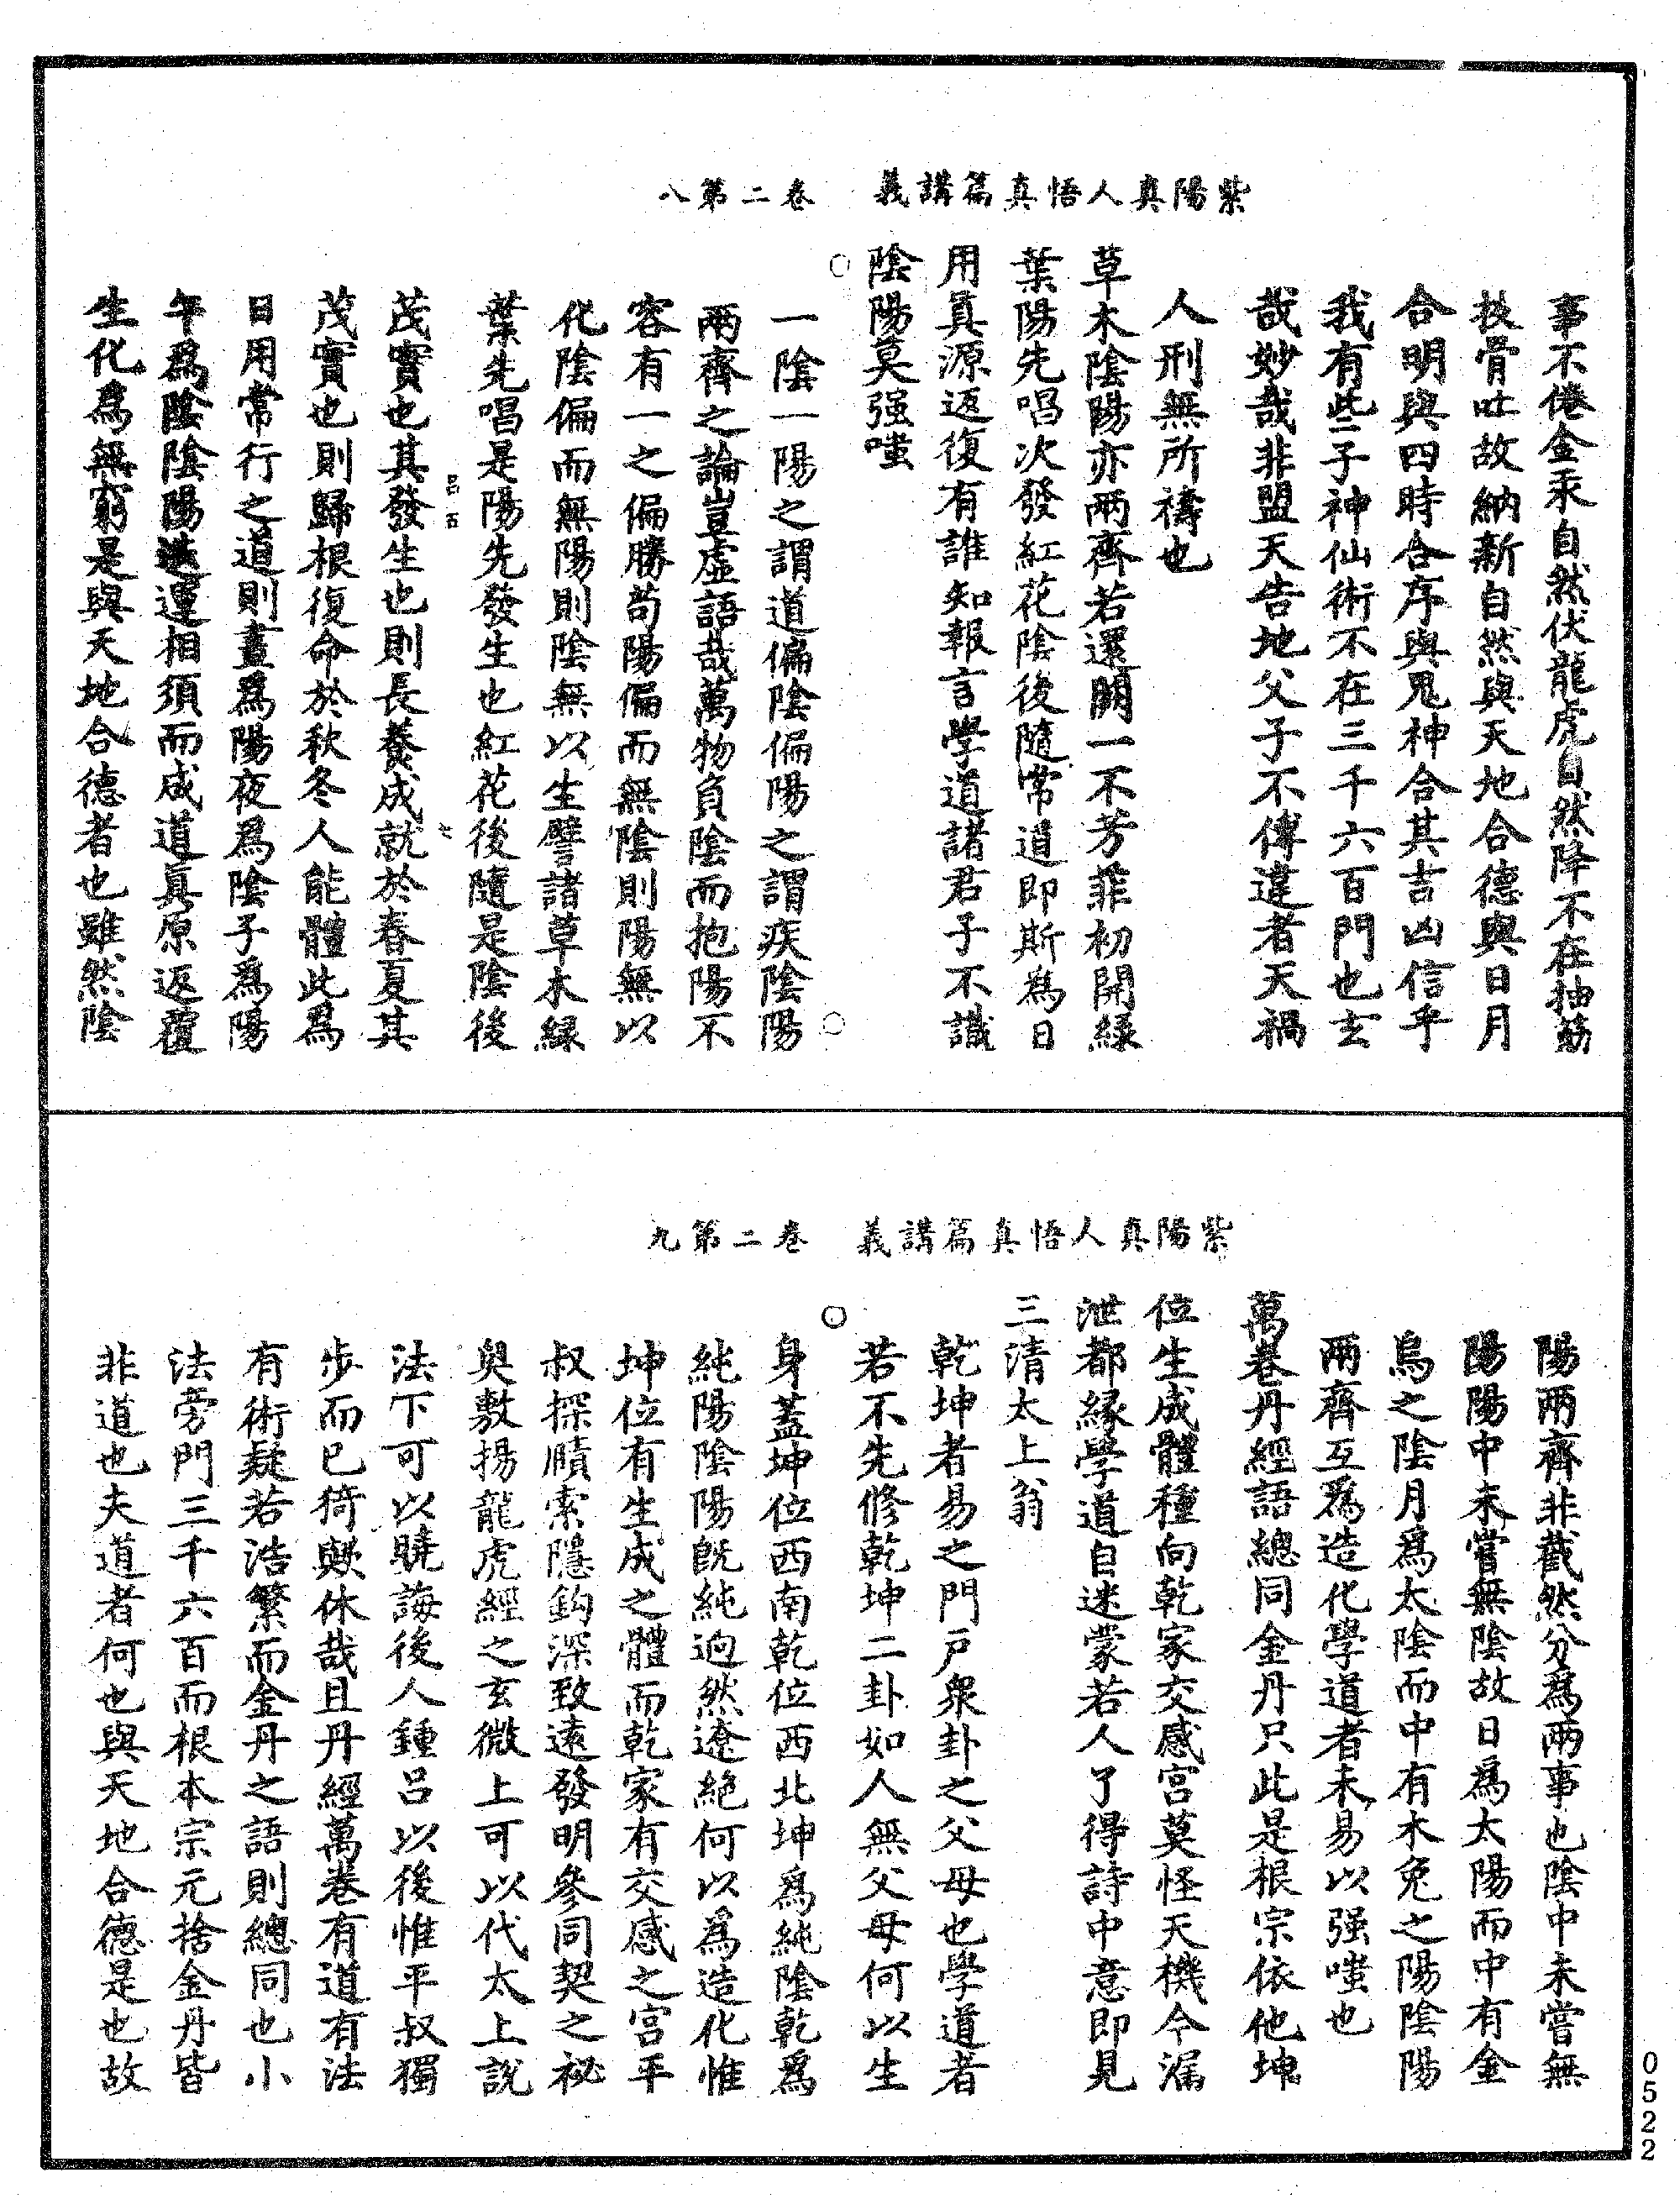 紫陽真人悟真篇講義　卷二第八
事不倦金汞自然伏龍虎自然降不在抽筋
拔骨吐故納新自然與天地合德與日月
合明與四時合序與鬼神合其吉凶信乎
我有些子神仙術不在三千六百門也玄
哉妙哉非盟天告地父子不傳違者天禍
人刑無所禱也
草木陰陽亦兩齊若還闕一不芳菲初開緑
葉陽先唱次發紅花陰後隨常道即斯為日
用真源返復有誰知報言學道諸君子不識
陰陽莫强嗤
一陰一陽之謂道偏陰偏陽之謂疾陰陽
兩齊之論豈虛語哉萬物負陰而抱陽不
容有一之偏勝苟陽偏而無陰則陽無以
化陰偏而無陽則陰無以生譬諸草木緑
葉先唱是陽先發生也紅花後隨是陰後
茂實也其發生也則長養成就於春夏其
茂實也則歸根復命於秋冬人能體此爲
日用常行之道則晝爲陽夜爲陰子爲陽
午爲陰陰陽迭運相須而成道真原返覆
生化爲無窮是與天地合德者也雖然陰
紫陽真人悟真篇講義　卷二第九
陽兩齊非截然分爲兩事也陰中未嘗無
陽陽中未嘗無陰故日爲太陽而中有金
烏之陰月爲太陰而中有木兔之陽陰陽
兩齊互爲造化學道者未易以强嗤也
萬卷丹經語總同金丹只此是根宗依他坤
位生成體種向乾家交感宫莫怪天機今漏
泄都緣學道自迷蒙若人了得詩中意即見
三清太上翁
乾坤者易之門戶衆卦之父母也學道者
若不先修乾坤二卦如人無父母何以生
身蓋坤位西南乾位西北坤爲純陰乾爲
純陽陰陽旣純逈然遼絕何以爲造化惟
坤位有生成之體而乾家有交感之宫平
叔探賾索隱鈎深致遠發明參同契之祕
奥敷揚龍虎經之玄微上可以代太上說
法下可以曉誨後人鍾呂以後惟平叔獨
步而已猗歟休哉且丹經萬卷有道有法
有術疑若浩繁而金丹之語則總同也小
法旁門三千六百而根本宗元捨金丹皆
非道也夫道者何也與天地合德是也故
0522